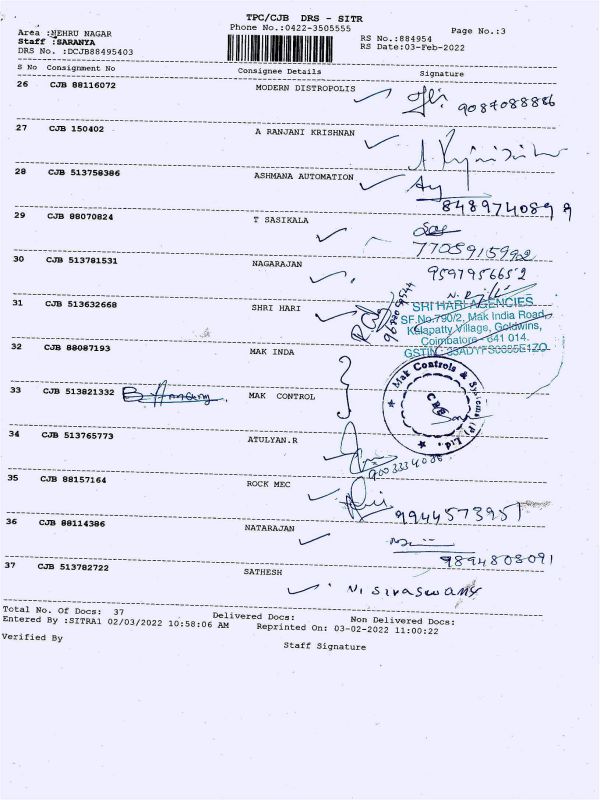 TPC/CJB DRS - SITR
Phone No.:0422-3505555
Page No.:3
Area :NEHRU NAGAR
RS No.:884954
Staff :SARANYA
RS Date:03-Feb-2022
DRS No. :DCJB88495403
S No Consignment No Consignee Details Signature
26 CJB 88116072 MODERN DISTROPOLIS 9087088886
27 CJB 150402 A RANJANI KRISHNAN
28 CJB 513758386 ASHMANA AUTOMATION
8489740899
29 CJB 88070824 T SASIKALA
7705915992
30 CJB 513781531 NAGARAJAN 9597956652
31 CJB 513632668 SHRI HARI
SRI HARI AGENCIES
SF.No.790/2, Mak India Road,
Kalapatty Village, Goldwins,
Coimbatore - 641 014.
32 CJB 88087193 MAK INDA
Mak Controls & Systems (P) Ltd.
CBE
33 CJB 513821332 MAK CONTROL
34 CJB 513765773 ATULYAN.R
35 CJB 88157164 ROCK MEC
9944573951
36 CJB 88114386 NATARAJAN
9894808091
37 CJB 513782722 SATHESH N. sivaswamy
Total No. Of Docs: 37 Delivered Docs: Non Delivered Docs:
Entered By :SITRA1 02/03/2022 10:58:06 AM Reprinted On: 03-02-2022 11:00:22
Verified By Staff Signature